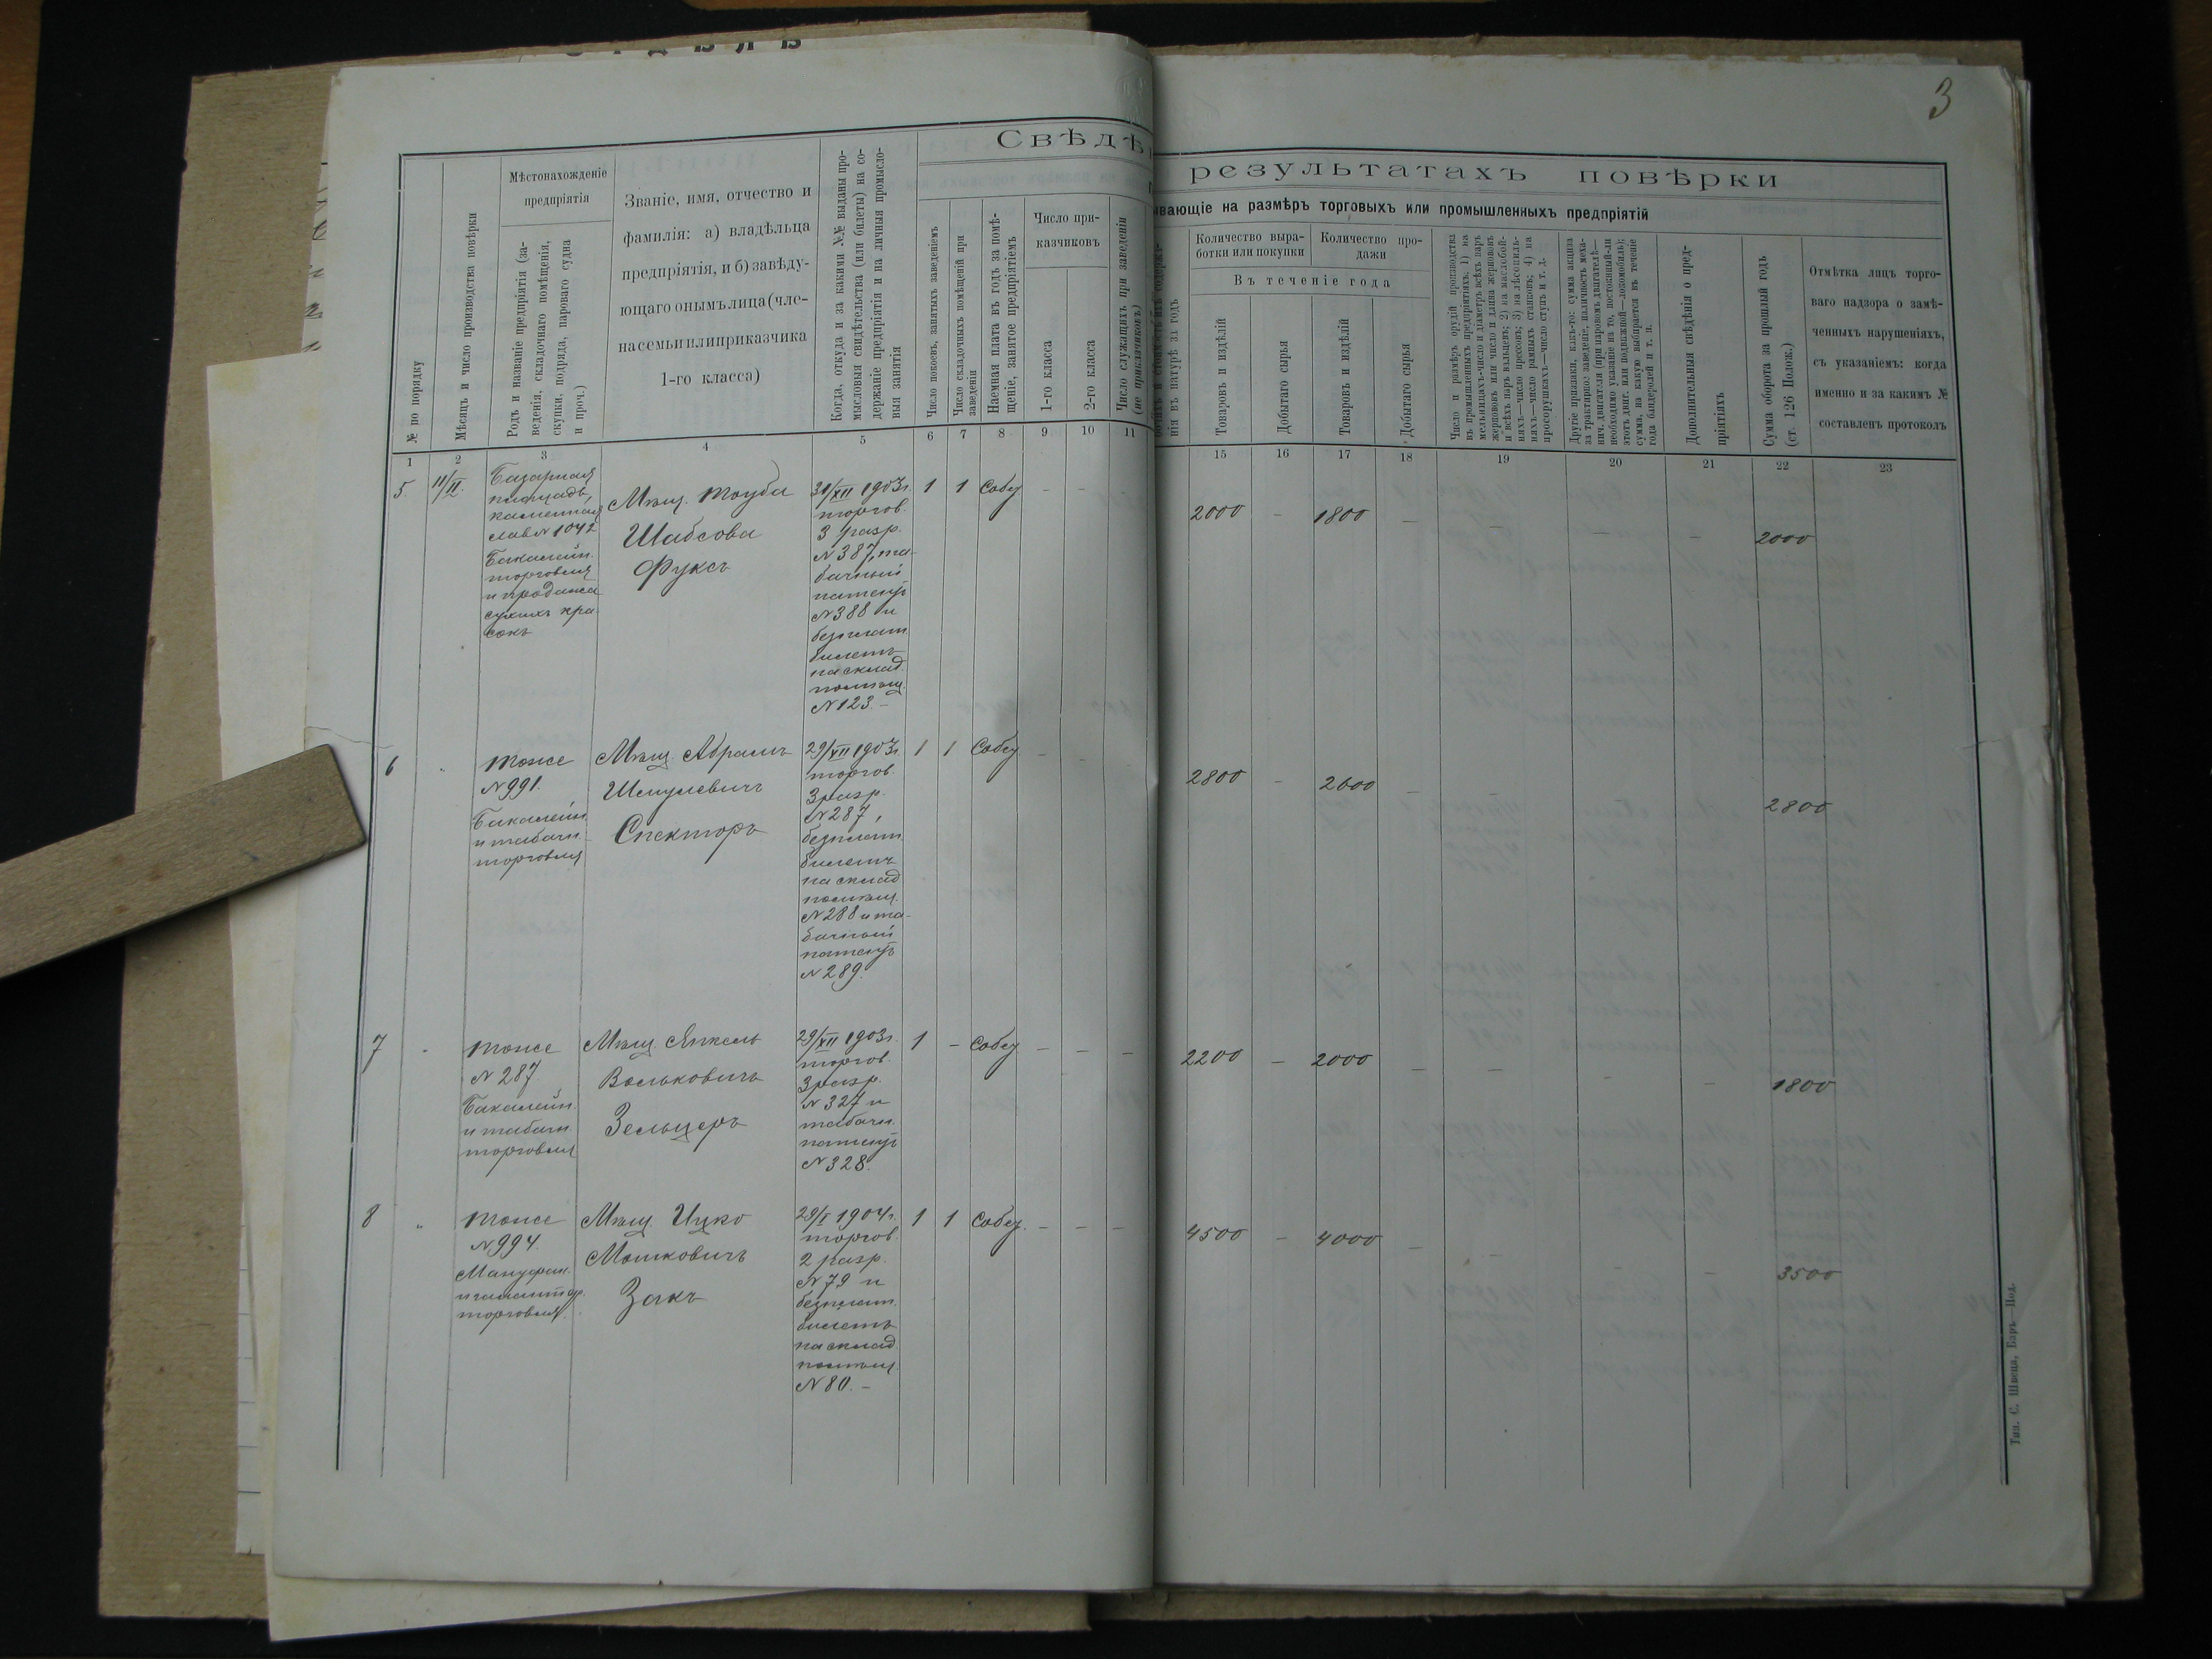 3
Свѣдѣ
результатахъ повѣрки
ывающіе на размѣръ торговыхъ или промышленныхъ предпріятій
№ по порядку
Мѣсяцъ и число производства повѣрки
Мѣстонахожденіе
предпріятія
Родъ и названіе предпріятія (за-
веденія, складочнаго помѣщенія,
скупки, подряда, пароваго судна
и проч.)
Званіе, имя, отчество и
фамилія: а) владѣльца
предпріятія, и б) завѣду-
ющаго онымъ лица (чле-
на семьи или приказчика
1-го класса)
Когда, откуда и за какими №№ выданы про-
мысловыя свидѣтельства (или билеты) на со-
держаніе предпріятія и на личныя промысло-
выя занятія
Число покоевъ, занятыхъ заведеніемъ
Число складочныхъ помѣщеній при
заведеніи
Наемная плата въ годъ за помѣ-
щеніе, занятое предпріятіемъ
Число при-
казчиковъ
1-го класса
2-го класса
Число служащихъ при заведеніи
(не приказчиковъ)
нія въ натурѣ за годъ
Количество выра-
ботки или покупки
Количество про-
дажи
Въ теченіе года
Товаровъ и издѣлій
Добытаго сырья
Товаровъ и издѣлій
Добытаго сырья
Число и размѣръ орудій производства
въ промышленныхъ предпріятіяхъ: 1) на
мельницахъ—число и діаметръ всѣхъ паръ
жернововъ или число и длина жернововъ
и всѣхъ паръ вальцевъ; 2) на маслобой-
няхъ—число прессовъ; 3) на лѣсопиль-
няхъ—число рамныхъ станковъ; 4) на
просорушкахъ—число ступъ и т. д.
Другіе признаки, какъ-то: сумма акциза
за трактирно: заведеніе, наличность меха-
нич. двигателя (при паровомъ двигателѣ—
необходимо указаніе на то, постоянный-ли
этотъ двиг. или подвижной—локомобиль);
сумма, на какую выбирается въ теченіе
года бандеролей и т. п.
Дополнительныя свѣдѣнія о пред-
пріятіяхъ
Сумма оборота за прошлый годъ
(ст. 126 Полож.)
Отмѣтка лицъ торго-
ваго надзора о замѣ-
ченныхъ нарушеніяхъ,
съ указаніемъ: когда
именно и за какимъ №
составленъ протоколъ
1 2 3 4 5 6 7 8 9 10 11 15 16 17 18 19 20 21 22 23
5 11/II
Базарная
площадь,
каменная
лав № 1042
Бакалейн.
торговля
и продажа
сухихъ кра
сокъ
Мѣщ. Тоуба
Шабсова
Фуксъ
31/XII 1903 г.
торгов.
3 разр.
№ 387, та-
бачный
патентъ
№ 388 и
безплат.
билетъ
на склад.
помѣщ.
№ 123. –
1 1 Собст – – 2000 – 1800 – – – – 2000
6 "
Тоже
№ 991.
Бакалейн.
и табачн.
торговля
Мѣщ. Абрамъ
Шмулевичъ
Спекторъ
29/XII 1903 г.
торгов.
3 разр.
№ 287,
безплат.
билетъ
на склад
помѣщ.
№ 288 и та-
бачный
патентъ
№ 289.
1 1 Собст – – – 2800 – 2600 – – 2800
7 "
Тоже
№ 287
Бакалейн.
и табачн.
торговля
Мѣщ. Янкель
Вольковичъ
Зельцеръ
29/XII 1903 г.
торгов.
3 разр.
№ 327 и
табачн.
патентъ
№ 328.
1 – Собст – – – 2200 – 2000 – – – – 1800
8 "
Тоже
№ 994.
Мануфак.
и галантер.
торговля.
Мѣщ. Ицко
Мошковичъ
Закъ
29/I 1904 г.
торгов.
2 разр.
№ 79 и
безплат.
билетъ
на склад.
помѣщ.
№ 80. –
1 1 Собст. – – – 4500 – 4000 – – – – 3500
Тип. С. Швеця, Баръ—Под.